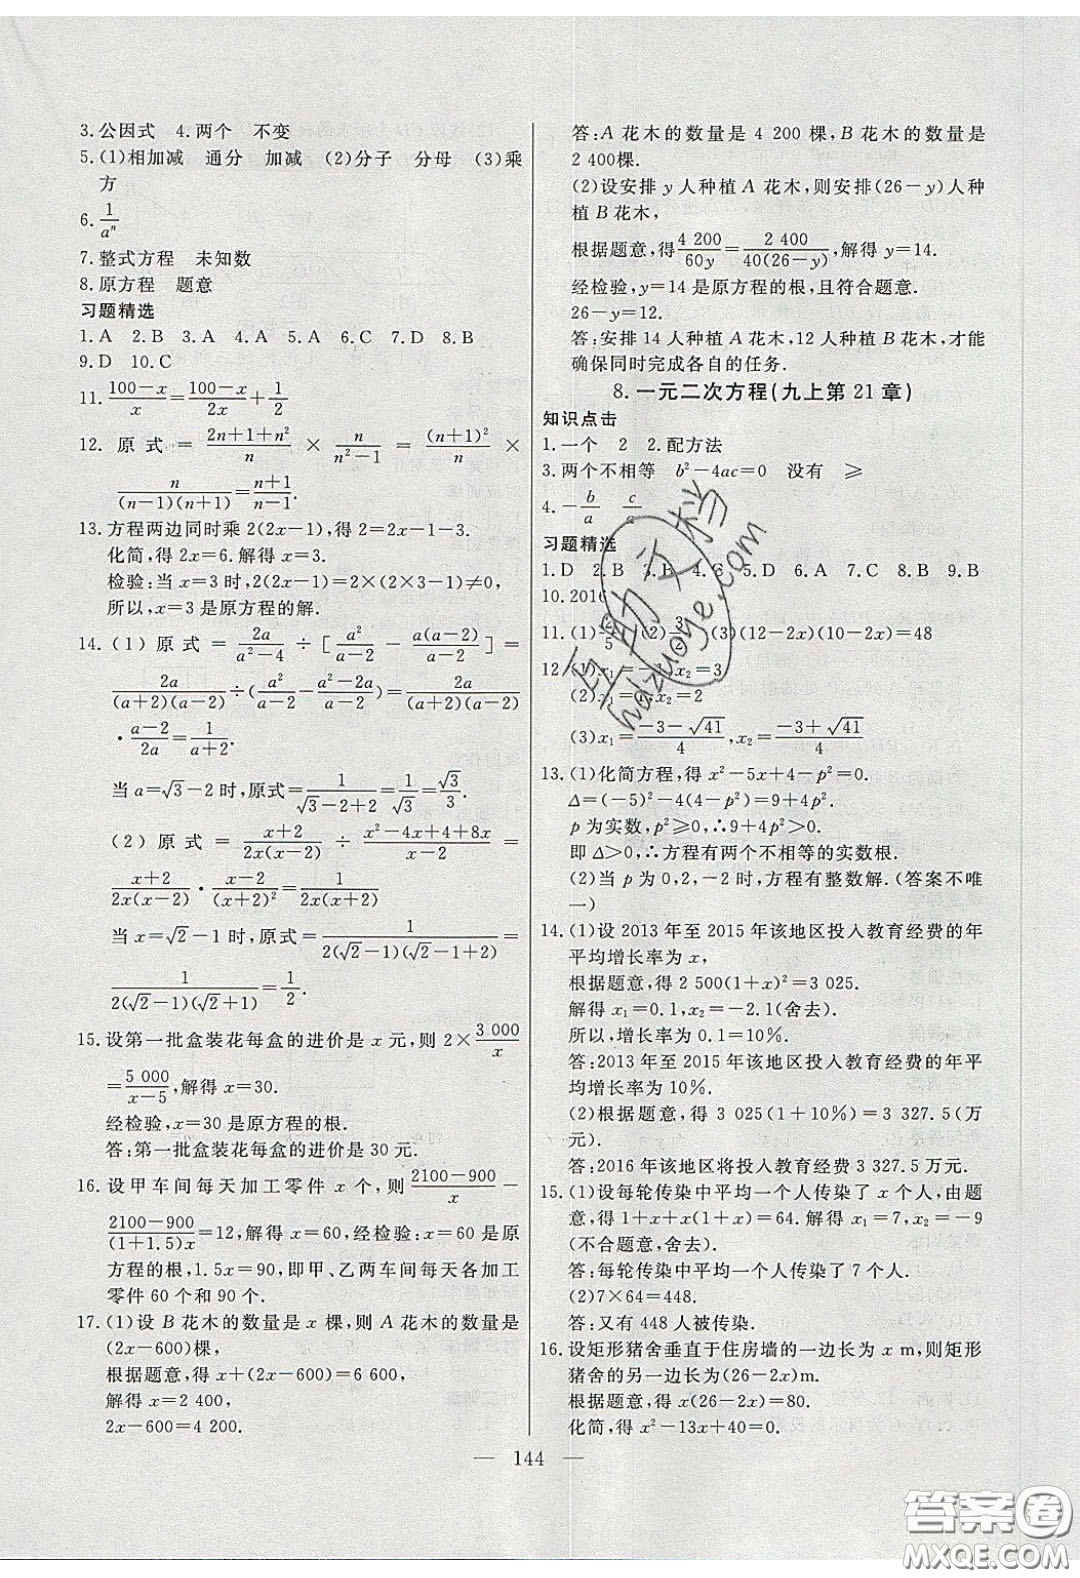 3.公因式　4.两个　不变
5.(1)相加减　通分　加减　(2)分子　分母　(3)乘
方
6. 1/aⁿ
7.整式方程　未知数
8.原方程　题意
习题精选
1.A　2.B　3.A　4.A　5.C　6.C　7.D　8.B
9.D　10.C
11. (100-x)/x=(100-x)/2x+1/2
12. 原式=(2n+1+n²)/n × n/(n²-1) = (n+1)²/n ×
n/((n-1)(n+1))=(n+1)/(n-1).
13. 方程两边同时乘 2(2x-1),得 2=2x-1-3.
化简,得 2x=6.解得 x=3.
检验:当 x=3 时,2(2x-1)=2×(2×3-1)≠0,
所以,x=3 是原方程的解.
14. (1) 原式=2a/(a²-4) ÷ [a²/(a-2) - a(a-2)/(a-2)] =
2a/((a+2)(a-2))÷(a²/(a-2)-(a²-2a)/(a-2))=2a/((a+2)(a-2))
·(a-2)/2a=1/(a+2).
当 a=√3-2 时,原式=1/(√3-2+2)=1/√3=√3/3.
(2) 原式=(x+2)/(2x(x-2)) ÷ (x²-4x+4+8x)/(x-2) =
(x+2)/(2x(x-2))·(x-2)/(x+2)²=1/(2x(x+2))
当 x=√2-1 时,原式=1/(2(√2-1)(√2-1+2))=
1/(2(√2-1)(√2+1))=1/2.
15. 设第一批盒装花每盒的进价是 x 元,则 2×3 000/x
=5 000/(x-5),解得 x=30.
经检验,x=30 是原方程的根.
答:第一批盒装花每盒的进价是 30 元.
16. 设甲车间每天加工零件 x 个,则(2100-900)/x-
(2100-900)/((1+1.5)x)=12,解得 x=60,经检验:x=60 是原
方程的根,1.5x=90,即甲、乙两车间每天各加工
零件 60 个和 90 个.
17. (1)设 B 花木的数量是 x 棵,则 A 花木的数量是
(2x-600)棵,
根据题意,得 x+(2x-600)=6 600,
解得 x=2 400,
2x-600=4 200.
答:A 花木的数量是 4 200 棵,B 花木的数量是
2 400棵.
(2)设安排 y 人种植 A 花木,则安排(26-y)人种
植 B 花木,
根据题意,得4 200/60y=2 400/(40(26-y)),解得 y=14.
经检验,y=14 是原方程的根,且符合题意.
26-y=12.
答:安排 14 人种植 A 花木,12 人种植 B 花木,才能
确保同时完成各自的任务.
8.一元二次方程(九上第 21 章)
知识点击
1.一个　2　2.配方法
3.两个不相等　b²-4ac=0　没有　≥
4.-b/a　c/a
习题精选
1.D　2.B　3.B　4.C　5.D　6.A　7.C　8.B　9.B
10.2016
11.(1)　(2)　(3)(12-2x)(10-2x)=48
12.(1)x₁=-1,x₂=3
(2)x₁=1,x₂=2
(3)x₁=(-3-√41)/4,x₂=(-3+√41)/4
13.(1)化简方程,得 x²-5x+4-p²=0.
Δ=(-5)²-4(4-p²)=9+4p².
p 为实数,p²≥0,∴9+4p²>0.
即 Δ>0,∴方程有两个不相等的实数根.
(2)当 p 为 0,2,-2 时,方程有整数解.(答案不唯
一)
14.(1)设 2013 年至 2015 年该地区投入教育经费的年
平均增长率为 x,
根据题意,得 2 500(1+x)²=3 025.
解得 x₁=0.1,x₂=-2.1(舍去).
所以,增长率为 0.1=10%.
答:2013 年至 2015 年该地区投入教育经费的年平
均增长率为 10%.
(2)根据题意,得 3 025(1+10%)=3 327.5(万
元).
答:2016 年该地区将投入教育经费 3 327.5 万元.
15.(1)设每轮传染中平均一个人传染了 x 个人,由题
意,得 1+x+x(1+x)=64. 解得 x₁=7,x₂=-9
(不合题意,舍去).
答:每轮传染中平均一个人传染了 7 个人.
(2)7×64=448.
答:又有 448 人被传染.
16.设矩形猪舍垂直于住房墙的一边长为 x m,则矩形
猪舍的另一边长为(26-2x)m.
根据题意,得 x(26-2x)=80.
化简,得 x²-13x+40=0.
— 144 —
互助文档
hdzuoye.com
答案圈
MXQE.COM